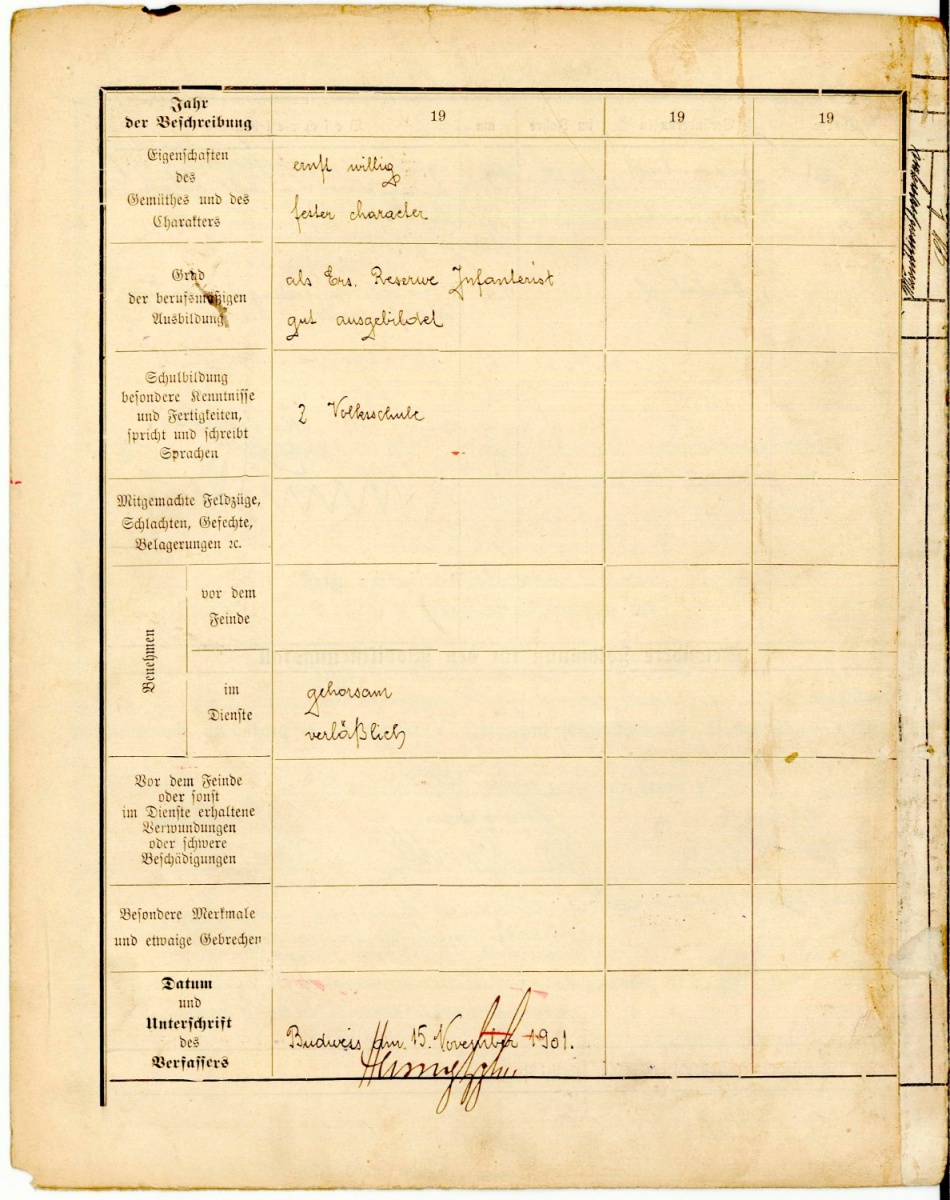 Jahr
der Beschreibung
19
19
19
Eigenschaften
des
Gemüthes und des
Charakters
ernst willig
fester character
Grad
der berufsmäßigen
Ausbildung
als Ers. Reserve Infanterist
gut ausgebildet
Schulbildung
besondere Kenntnisse
und Fertigkeiten,
spricht und schreibt
Sprachen
2 Volksschule
Mitgemachte Feldzüge,
Schlachten, Gefechte,
Belagerungen ꝛc.
Benehmen
vor dem
Feinde
im
Dienste
gehorsam
verläßlich
Vor dem Feinde
oder sonst
im Dienste erhaltene
Verwundungen
oder schwere
Beschädigungen
Besondere Merkmale
und etwaige Gebrechen
Datum
und
Unterschrift
des
Verfassers
Budweis am 15. November 1901.